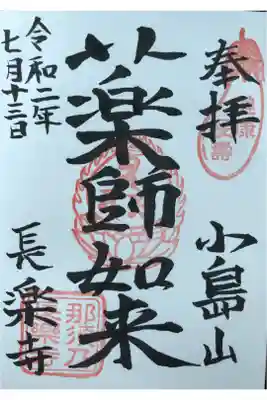 奉拝
小島山
薬師如来
令和二年
七月十三日
長楽寺